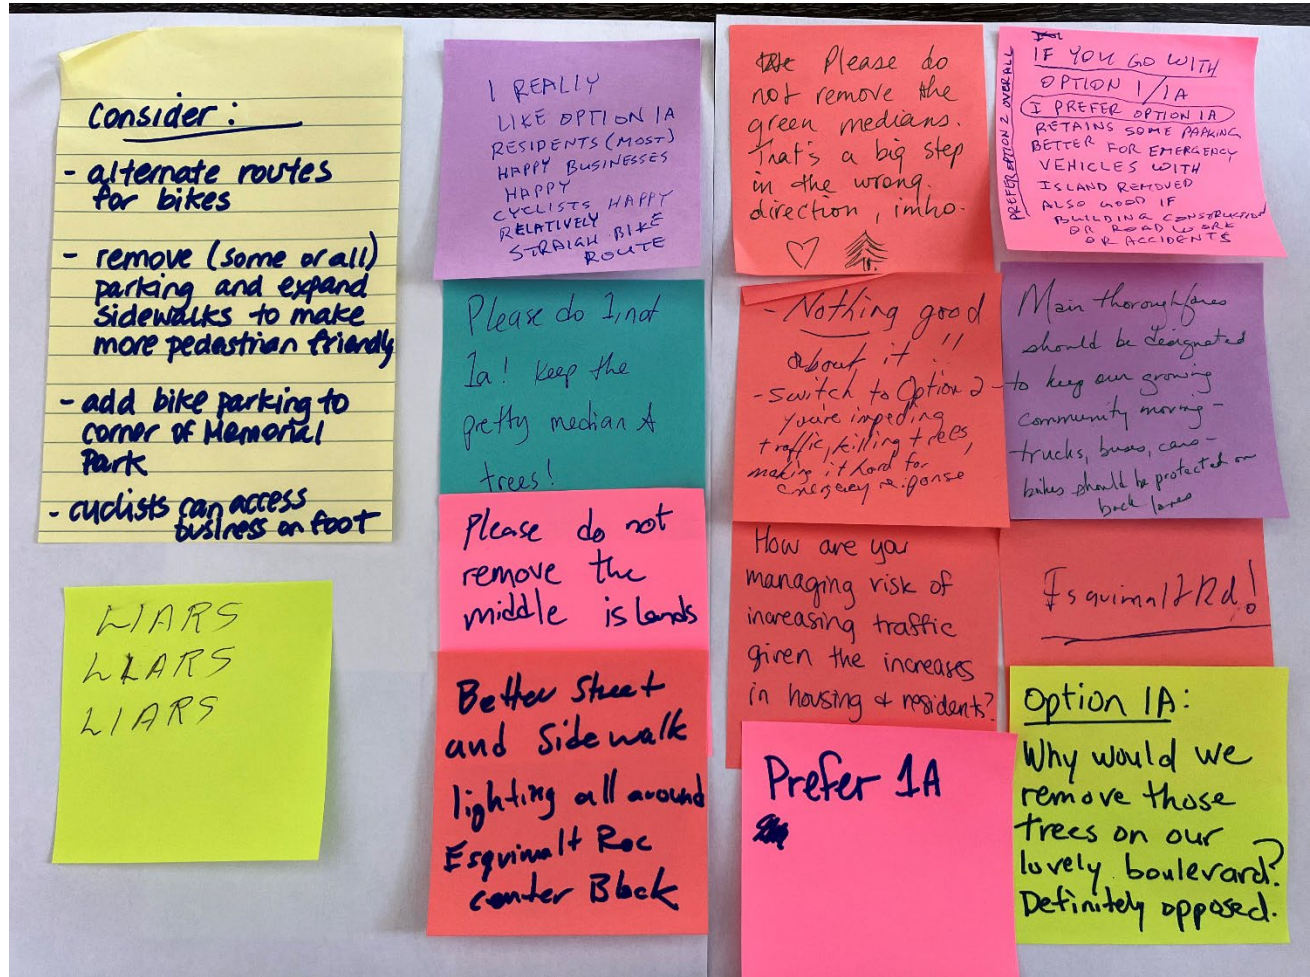 Consider:
- alternate routes
for bikes
- remove (some or all)
parking and expand
sidewalks to make
more pedestrian friendly
- add bike parking to
corner of Memorial
Park
- cyclists can access
business on foot
LIARS
LIARS
LIARS
I REALLY
LIKE OPTION 1A
RESIDENTS (MOST)
HAPPY BUSINESSES
HAPPY
CYCLISTS HAPPY
RELATIVELY
STRAIGH BIKE
ROUTE
Please do 1, not
1a! Keep the
pretty median &
trees!
Please do not
remove the
middle islands
Better Street
and Sidewalk
lighting all around
Esquimalt Rec
center Block
Please do
not remove the
green medians.
That's a big step
in the wrong
direction, imho.
- Nothing good
about it!!
- Switch to Option 2
you're impeding
traffic, killing trees,
making it hard for
emergency response
How are you
managing risk of
increasing traffic
given the increases
in housing & residents?
Prefer 1A
PREFER OPTION 2 OVERALL
IF YOU GO WITH
OPTION 1/1A
I PREFER OPTION 1A
RETAINS SOME PARKING
BETTER FOR EMERGENCY
VEHICLES WITH
ISLAND REMOVED
ALSO GOOD IF
BUILDING CONSTRUCTION
OR ROAD WORK
OR ACCIDENTS
Main thoroughfares
should be designated
to keep our growing
community moving -
trucks, buses, cars -
bikes should be protected on
back lanes
Esquimalt Rd!
Option 1A:
Why would we
remove those
trees on our
lovely boulevard?
Definitely opposed.